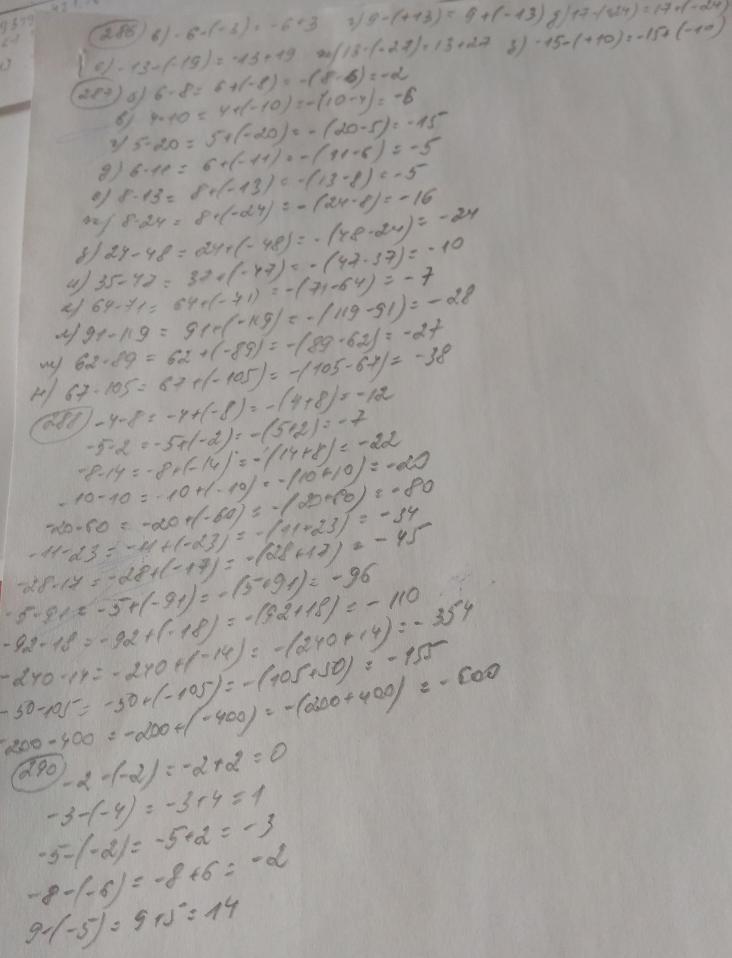 286 в) -6-(-3) = -6+3 г) 9-(+13) = 9+(-13) д) 17-(+24) = 17+(-24)
е) -13-(-19) = -13+19 ж) 13-(-27) = 13+27 з) -15-(+10) = -15+(-10)
287 б) 6-8 = 6+(-8) = -(8-6) = -2
в) 4-10 = 4+(-10) = -(10-4) = -6
г) 5-20 = 5+(-20) = -(20-5) = -15
д) 6-11 = 6+(-11) = -(11-6) = -5
е) 8-13 = 8+(-13) = -(13-8) = -5
ж) 8-24 = 8+(-24) = -(24-8) = -16
з) 24-48 = 24+(-48) = -(48-24) = -24
и) 35-47 = 37+(-47) = -(47-37) = -10
к) 64-71 = 64+(-71) = -(71-64) = -7
л) 91-119 = 91+(-119) = -(119-91) = -28
м) 62-89 = 62+(-89) = -(89-62) = -27
н) 67-105 = 67+(-105) = -(105-67) = -38
288 -4-8 = -4+(-8) = -(4+8) = -12
-5-2 = -5+(-2) = -(5+2) = -7
-8-14 = -8+(-14) = -(14+8) = -22
-10-10 = -10+(-10) = -(10+10) = -20
-20-60 = -20+(-60) = -(20+60) = -80
-11-23 = -11+(-23) = -(11+23) = -34
-28-17 = -28+(-17) = -(28+17) = -45
-5-91 = -5+(-91) = -(5+91) = -96
-92-18 = -92+(-18) = -(92+18) = -110
-240-14 = -240+(-14) = -(240+14) = -354
-50-105 = -50+(-105) = -(105+50) = -155
-200-400 = -200+(-400) = -(200+400) = -600
290 -2-(-2) = -2+2 = 0
-3-(-4) = -3+4 = 1
-5-(-2) = -5+2 = -3
-8-(-6) = -8+6 = -2
9-(-5) = 9+5 = 14